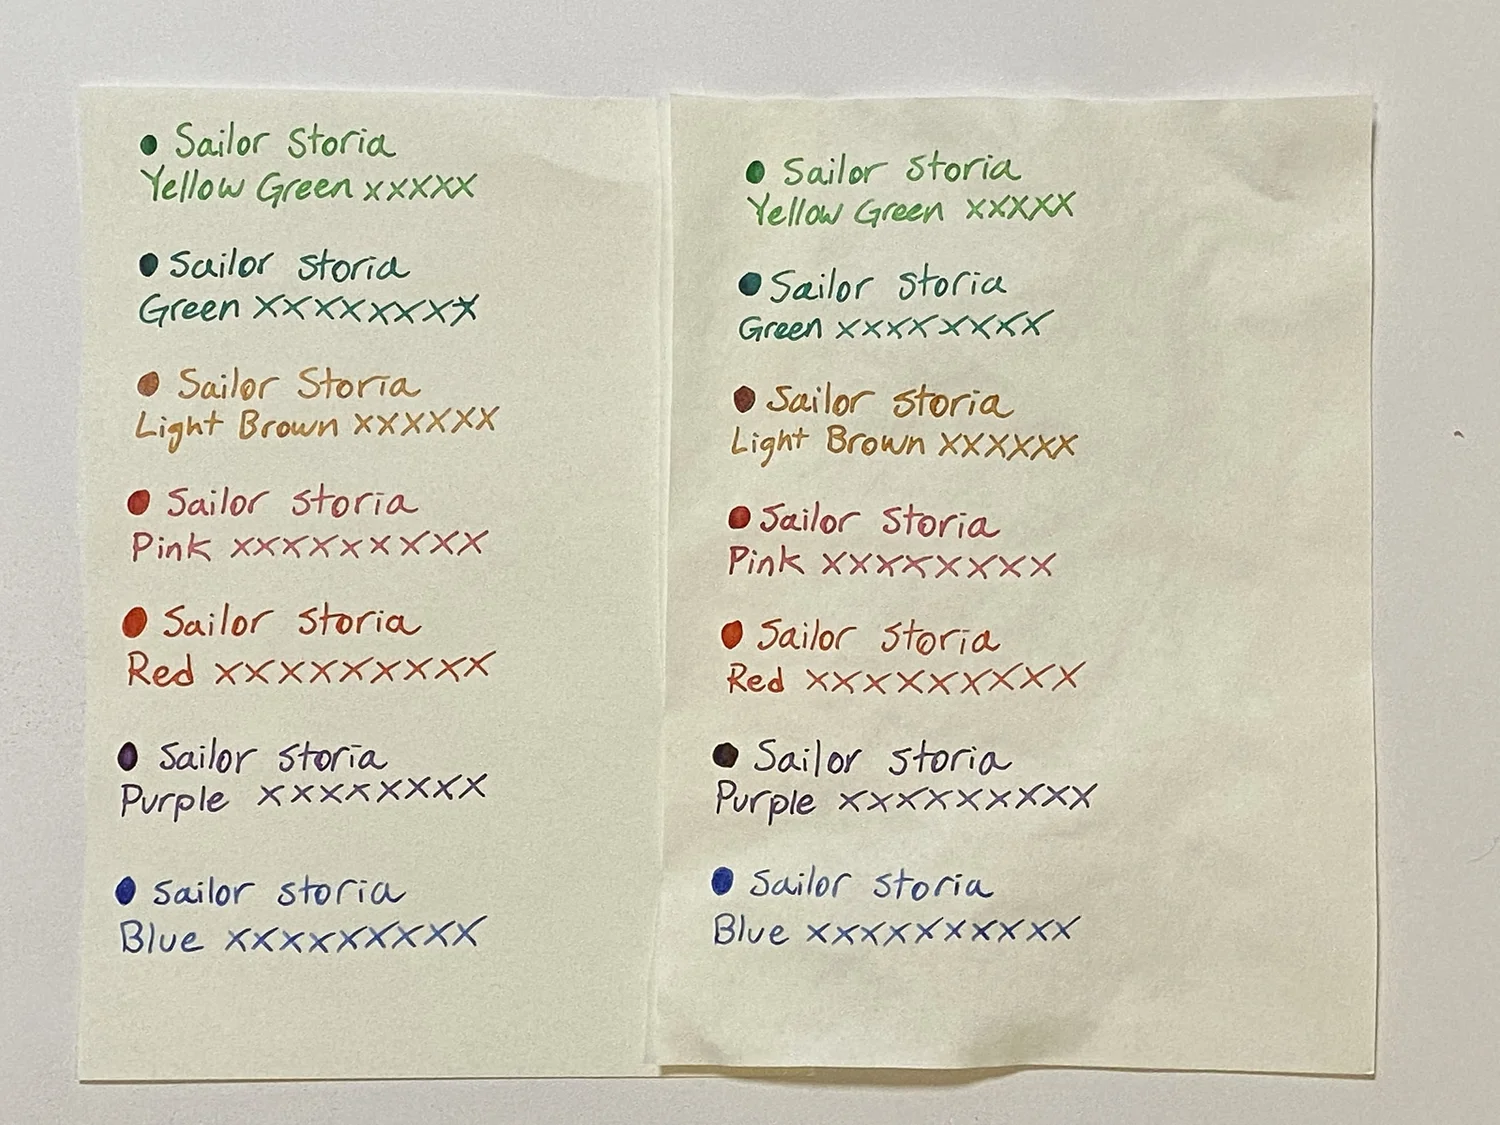 Sailor Storia
Yellow Green xxxxx
Sailor Storia
Green xxxxxxxx
Sailor Storia
Light Brown xxxxxx
Sailor Storia
Pink xxxxxxxxx
Sailor Storia
Red xxxxxxxxx
Sailor Storia
Purple xxxxxxxx
Sailor Storia
Blue xxxxxxxxx
Sailor Storia
Yellow Green xxxxx
Sailor Storia
Green xxxxxxxx
Sailor Storia
Light Brown xxxxxx
Sailor Storia
Pink xxxxxxxx
Sailor Storia
Red xxxxxxxxx
Sailor Storia
Purple xxxxxxxxx
Sailor Storia
Blue xxxxxxxxxx